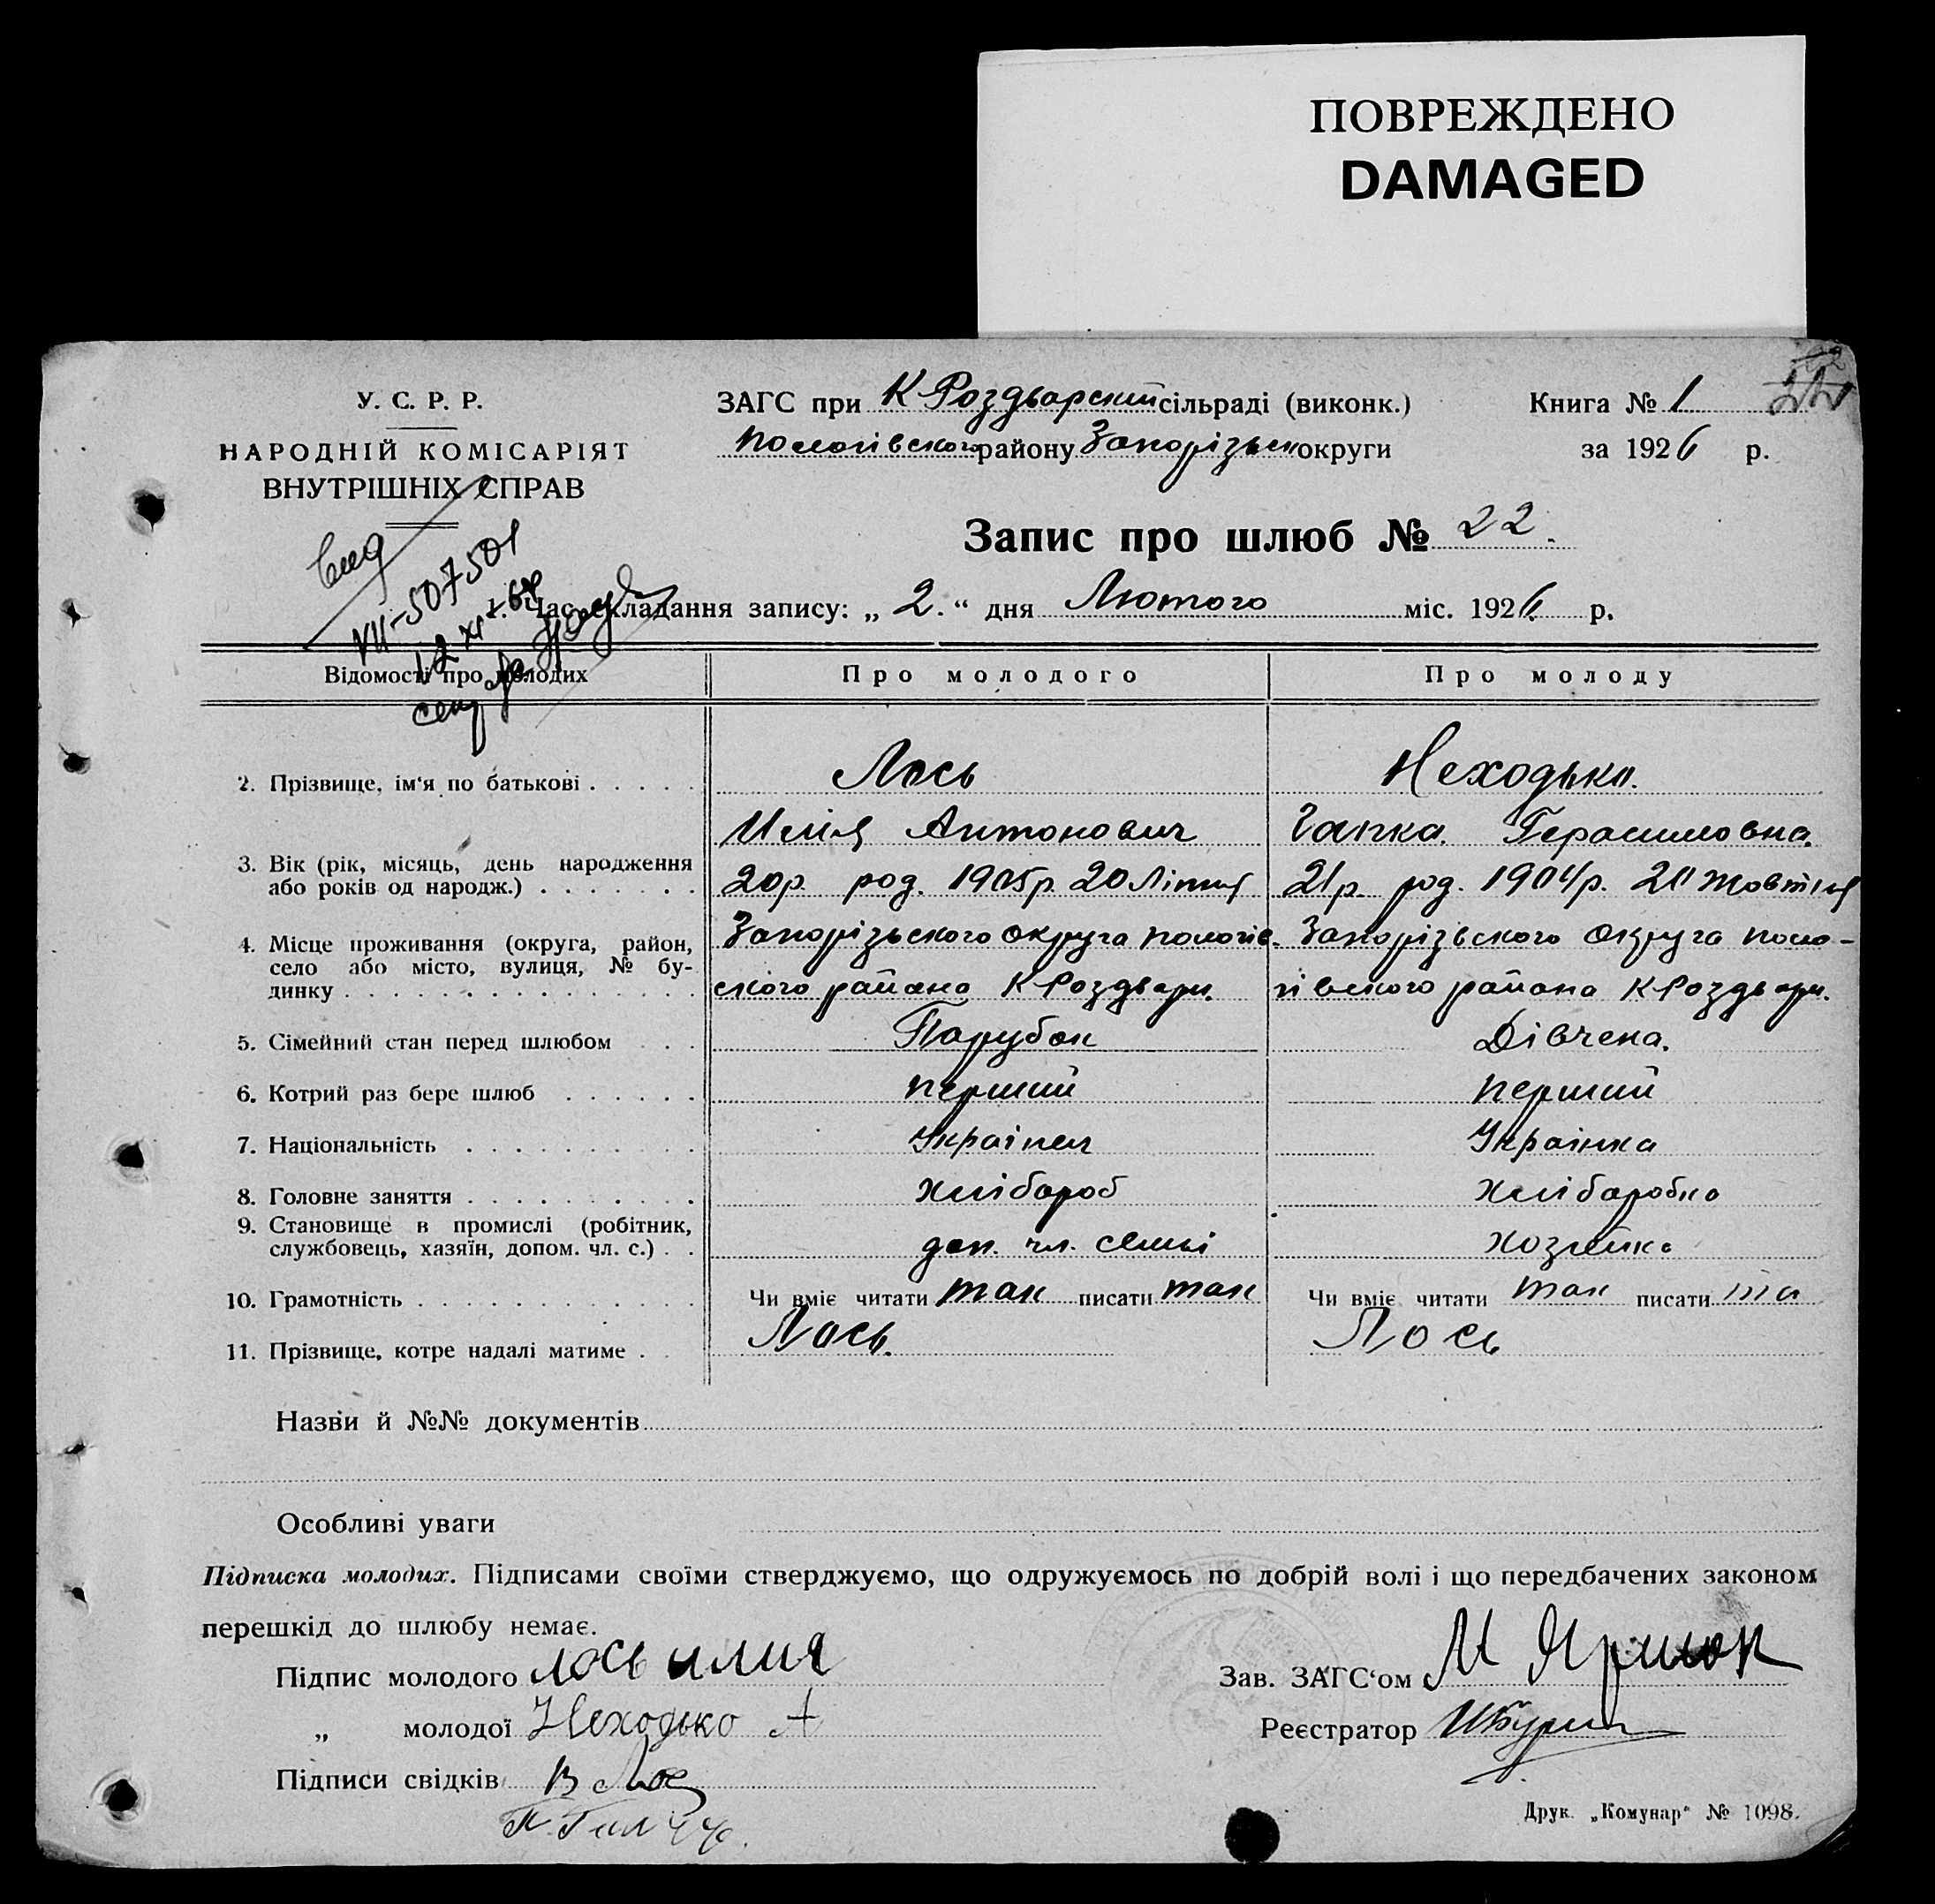 ПОВРЕЖДЕНО
DAMAGED
У. С. Р. Р.
НАРОДНІЙ КОМІСАРІЯТ
ВНУТРІШНІХ СПРАВ
ЗАГС при К Роздьарский сільраді (виконк.)
Пологівского району Запорізьк округи
Книга № 1
за 1926 р.
Запис про шлюб № 22.
VII-507501
1. Час складання запису: „ 2. “ дня Лютого міс. 1926 р.
Відомості про молодих
Про молодого
Про молоду
2. Прізвище, ім‘я по батькові . . . . . Лось Неходько.
Илія Антонович Гапка. Герасимовна.
3. Вік (рік, місяць, день народження
або років од народж.) . . . . . . . 20р. род. 1905р. 20 Ліпня 21р. род. 1904р. Жовтня
4. Місце проживання (округа, район, Запорізьского округа пологів- Запорізьского округа поло-
село або місто, вулиця, № бу-
динку . . . . . . . . . . . . . . . ского района К Роздьари. гівського района К Роздьари.
5. Сімейний стан перед шлюбом . . . Парубок Дівчена.
6. Котрий раз бере шлюб . . . . . . перший перший
7. Національність . . . . . . . . . . Українец Українка
8. Головне заняття . . . . . . . . . . хлібороб хліборобка
9. Становище в промислі (робітник,
службовець, хазяїн, допом. чл. с.) . . доп. чл. семьі хозяйка
10. Грамотність . . . . . . . . . . . . . Чи вміє читати так писати так Чи вміє читати так писати та
11. Прізвище, котре надалі матиме . Лось. Лось
Назви й №№ документів
Особливі уваги
Підписка молодих. Підписами своїми стверджуємо, що одружуємось по добрій волі і що передбачених законом
перешкід до шлюбу немає.
Підпис молодого лось илия
Зав. ЗАГС‘ом М Ярмок
„ молодої Неходько А
Реєстратор
Підписи свідків В Лось
Друк. „Комунар“ № 1098.